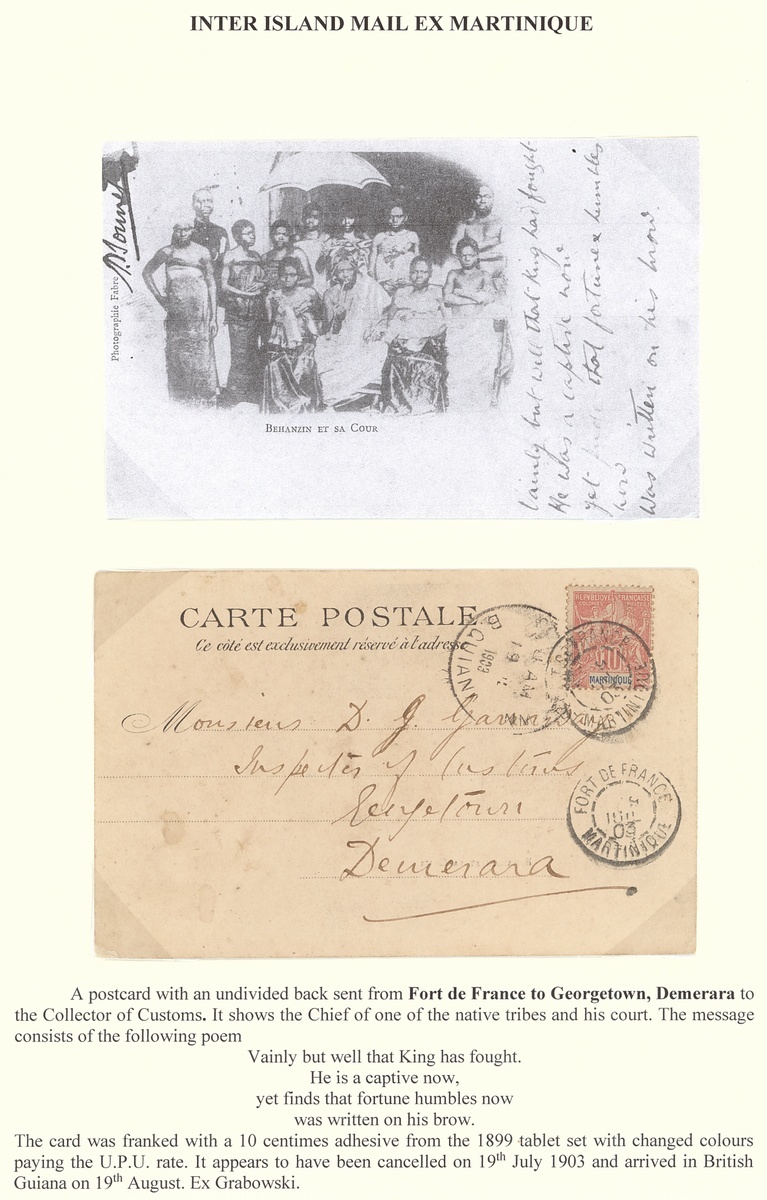 INTER ISLAND MAIL EX MARTINIQUE
Photographie Fabre
BEHANZIN ET SA COUR
Vainly but well that King had fought
He was a captive now
yet that fortune humbles
now
Was written on his brow.
CARTE POSTALE
Ce côté est exclusivement réservé à l'adresse
REPUBLIQUE FRANÇAISE
COLONIES
10
MARTINIQUE
B. GUIANA
AM
19
1903
FORT DE FRANCE
MARTINIQUE
Monsieur D. G.
Inspecter of Customs
Georgetown
Demerara
FORT DE FRANCE
JUIL
03
MARTINIQUE
A postcard with an undivided back sent from Fort de France to Georgetown, Demerara to
the Collector of Customs. It shows the Chief of one of the native tribes and his court. The message
consists of the following poem
Vainly but well that King has fought.
He is a captive now,
yet finds that fortune humbles now
was written on his brow.
The card was franked with a 10 centimes adhesive from the 1899 tablet set with changed colours
paying the U.P.U. rate. It appears to have been cancelled on 19th July 1903 and arrived in British
Guiana on 19th August. Ex Grabowski.